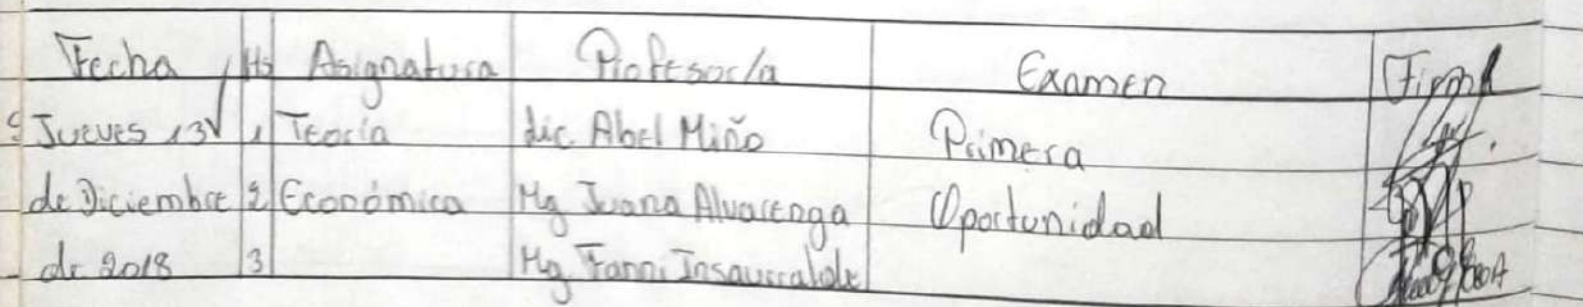 Fecha Hs Asignatura Profesor/a Examen Firma
Jueves 13 1 Teoría Lic. Abel Miño Primera
de Diciembre 2 Económica Mg Juana Alvarenga Oportunidad
de 2018 3 Mg Fanni Insaurralde